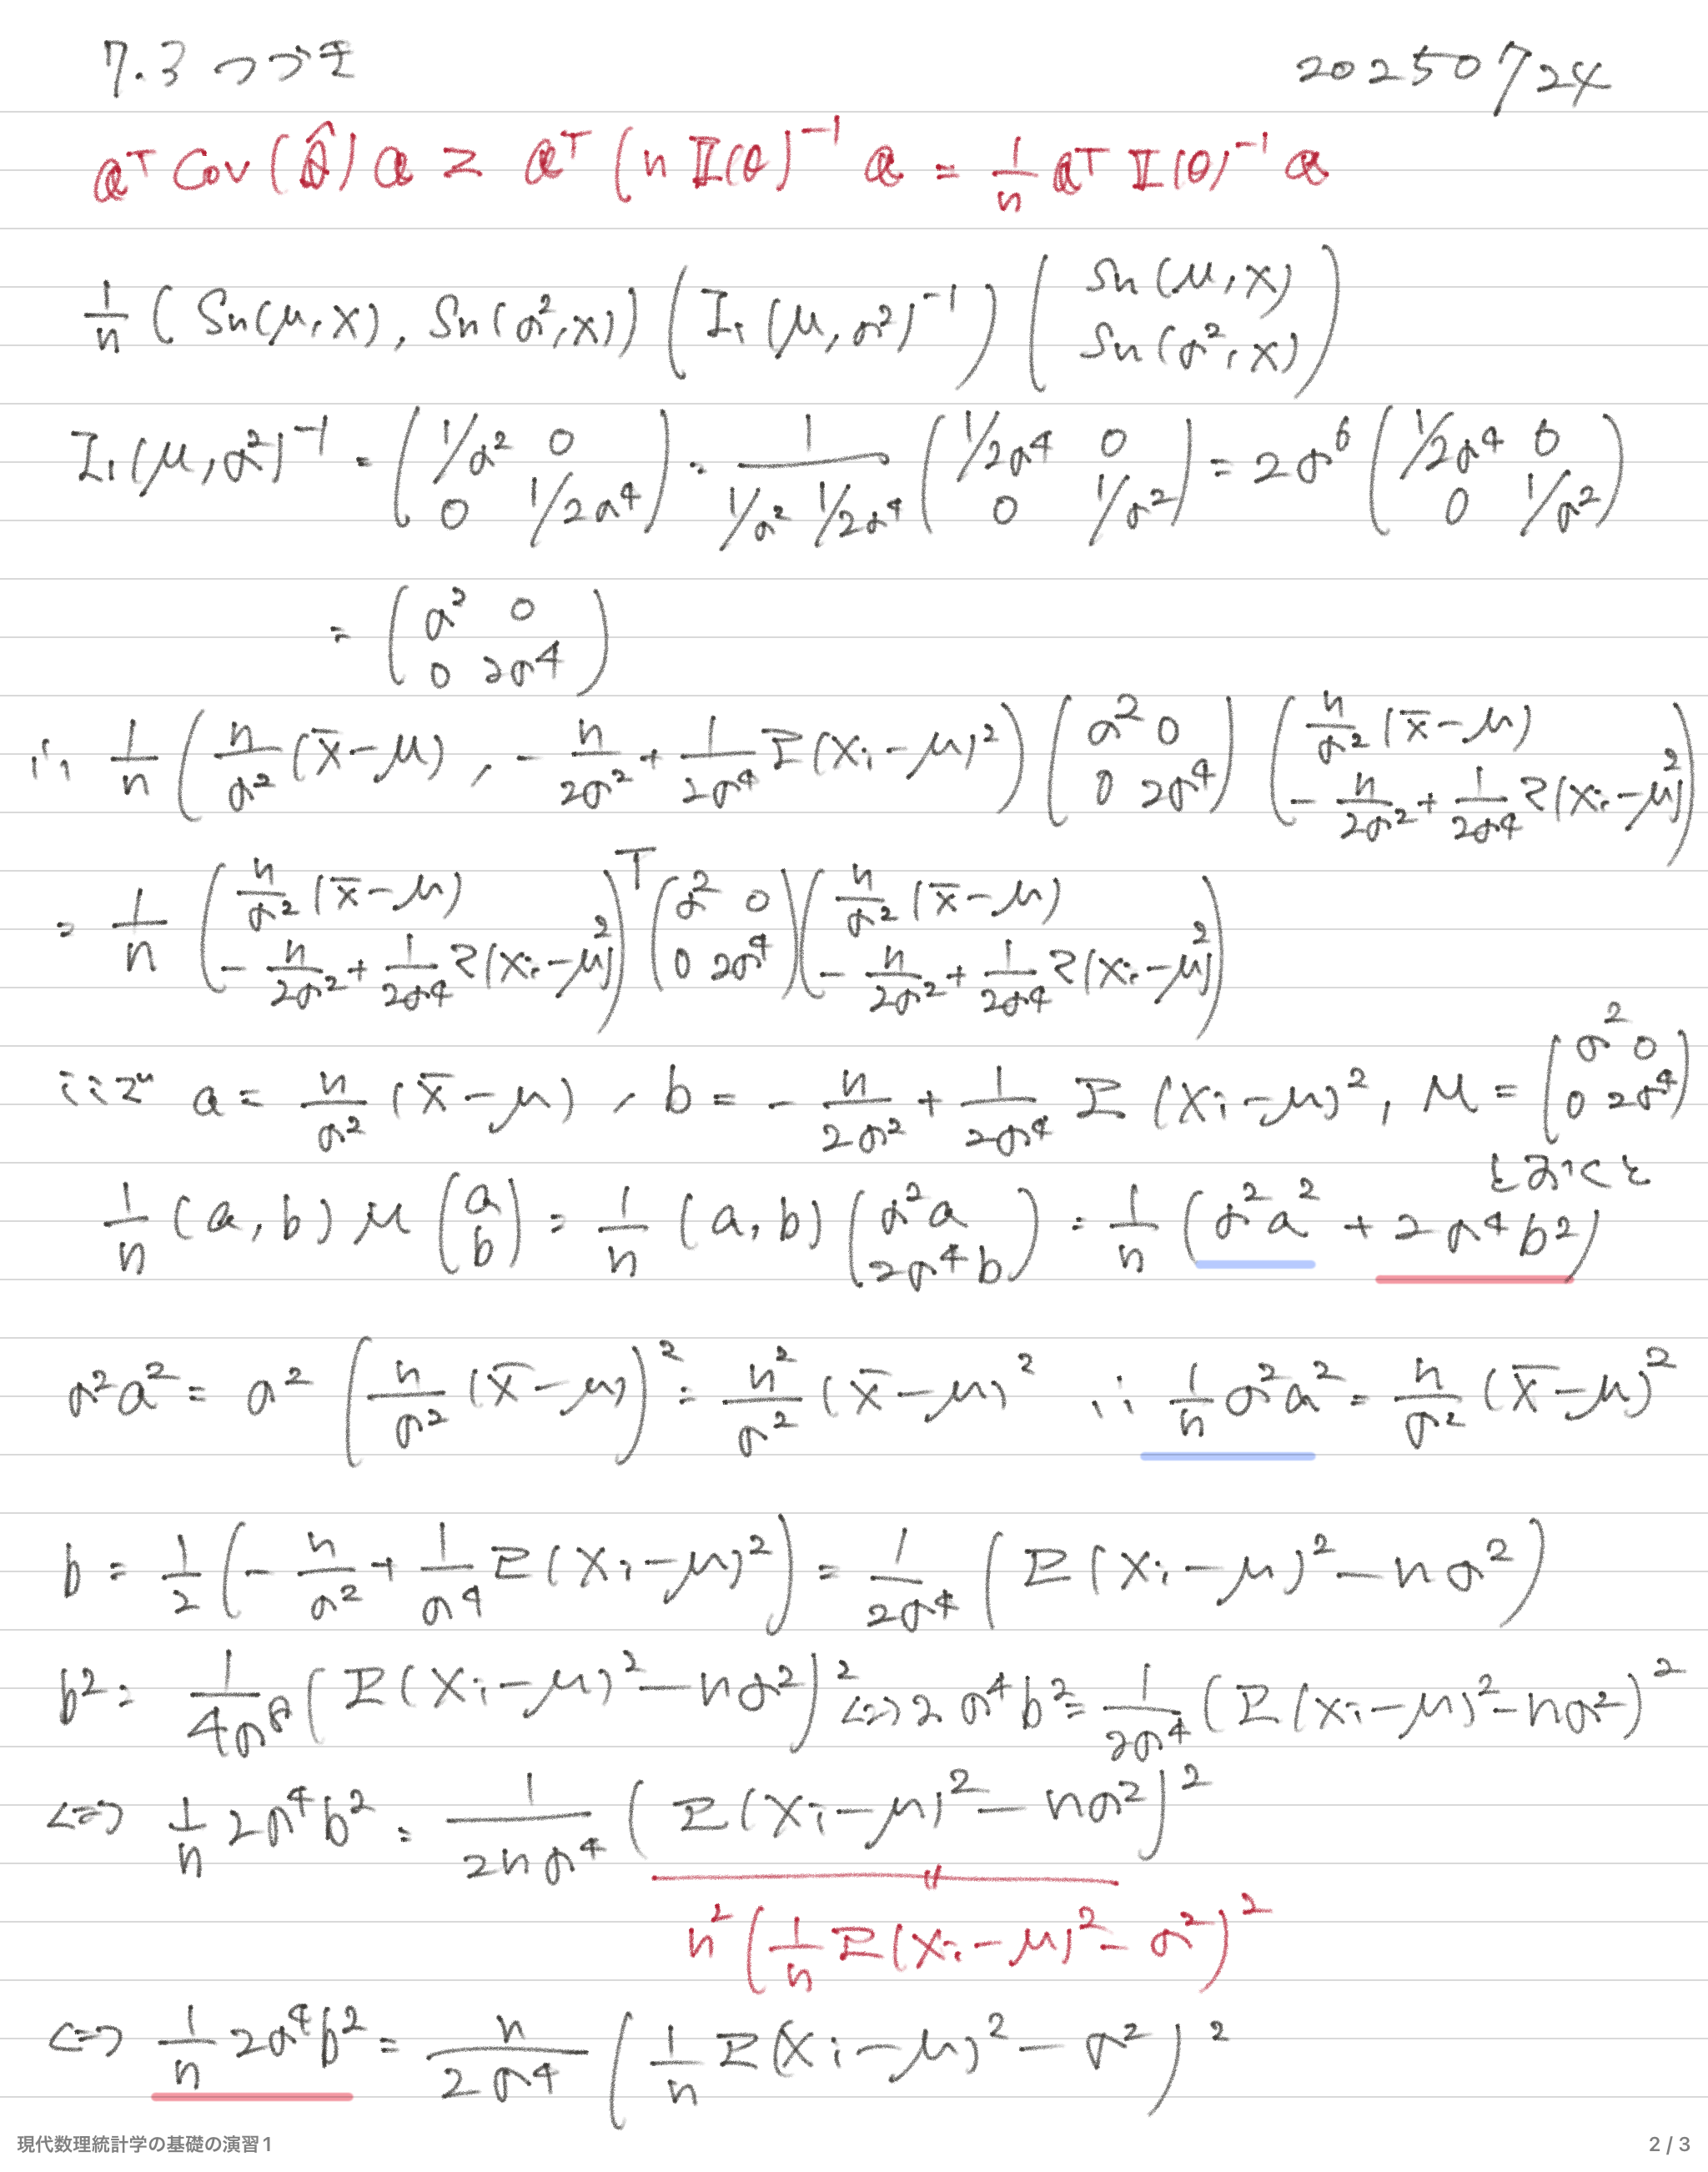 7.3 つづき 20250724
𝕒ᵀ Cov(θ̂) 𝕒 ≥ 𝕒ᵀ (n 𝕀(θ)⁻¹ 𝕒 = 1/n 𝕒ᵀ 𝕀(θ)⁻¹ 𝕒
1/n (Sn(μ,X), Sn(σ²,X)) (I₁(μ,σ²)⁻¹) (Sn(μ,X) ; Sn(σ²,X))
I₁(μ,σ²)⁻¹ = (1/σ² 0 ; 0 1/2σ⁴) = 1/(1/σ² 1/2σ⁴) (1/2σ⁴ 0 ; 0 1/σ²) = 2σ⁶ (1/2σ⁴ 0 ; 0 1/σ²)
= (σ² 0 ; 0 2σ⁴)
∴ 1/n (n/σ² (X̄-μ), -n/2σ² + 1/2σ⁴ Σ(Xi-μ)²) (σ² 0 ; 0 2σ⁴) (n/σ² (X̄-μ) ; -n/2σ² + 1/2σ⁴ Σ(Xi-μ)²)
= 1/n (n/σ² (X̄-μ) ; -n/2σ² + 1/2σ⁴ Σ(Xi-μ)²)ᵀ (σ² 0 ; 0 2σ⁴) (n/σ² (X̄-μ) ; -n/2σ² + 1/2σ⁴ Σ(Xi-μ)²)
ここで a = n/σ² (X̄-μ), b = -n/2σ² + 1/2σ⁴ Σ(Xi-μ)², M = (σ² 0 ; 0 2σ⁴)
とおくと
1/n (a,b) M (a ; b) = 1/n (a,b) (σ²a ; 2σ⁴b) = 1/n (σ²a² + 2σ⁴b²)
σ²a² = σ² (n/σ² (X̄-μ))² = n²/σ² (X̄-μ)² ∴ 1/n σ²a² = n/σ² (X̄-μ)²
b = 1/2 (-n/σ² + 1/σ⁴ Σ(Xi-μ)²) = 1/2σ⁴ (Σ(Xi-μ)² - nσ²)
b² = 1/4σ⁸ (Σ(Xi-μ)² - nσ²)² ⇔ 2σ⁴b² = 1/2σ⁴ (Σ(Xi-μ)² - nσ²)²
⇔ 1/n 2σ⁴b² = 1/2nσ⁴ (Σ(Xi-μ)² - nσ²)²
n² (1/n Σ(Xi-μ)² - σ²)²
⇔ 1/n 2σ⁴b² = n/2σ⁴ (1/n Σ(Xi-μ)² - σ²)²
現代数理統計学の基礎の演習1 2 / 3